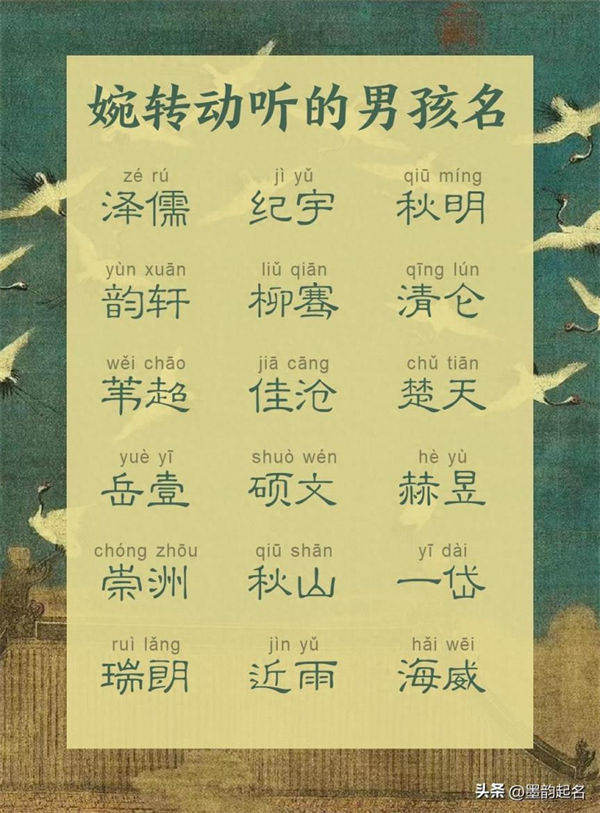 婉转动听的男孩名
zé rú jì yǔ qiū míng
泽儒 纪宇 秋明
yùn xuān liǔ qiān qīng lún
韵轩 柳骞 清仑
wěi chāo jiā cāng chǔ tiān
苇超 佳沧 楚天
yuè yī shuò wén hè yù
岳壹 硕文 赫昱
chóng zhōu qiū shān yī dài
崇洲 秋山 一岱
ruì lǎng jìn yǔ hǎi wēi
瑞朗 近雨 海威
头条 @墨韵起名